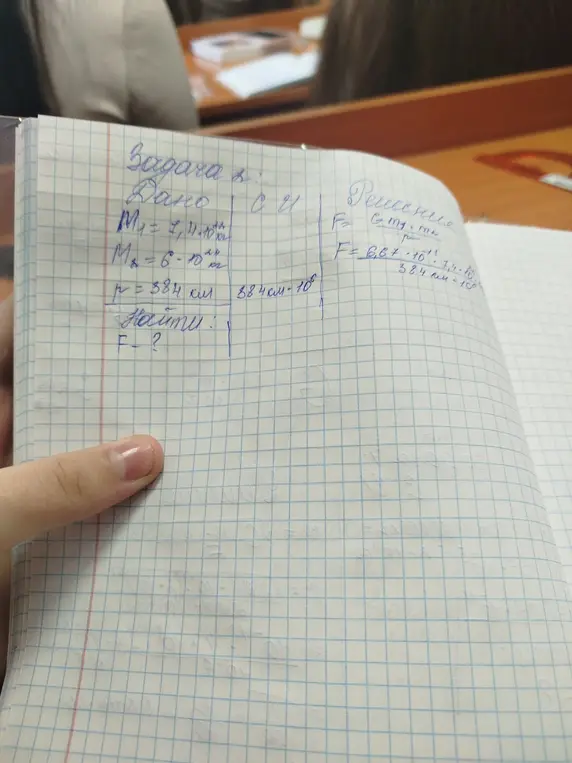 Задача 2:
Дано
СИ
Решение
M₁ = 7,4·10²² кг
M₂ = 6·10²⁴ кг
r = 384 км
384 км·10⁶
Найти:
F - ?
F = G m₁·m₂ / r
F = 6,67·10⁻¹¹·7,4·10 / 384 км·10⁶